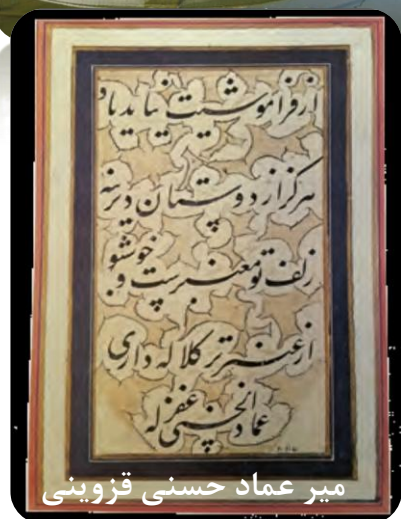 از فراموشیت نیاید یاد
هرگز از دوستان دیرینه
زلف تو معنبرست و خوشبو
از عنبر تر کلاله داری
عماد الحسنی غفر له
میر عماد حسنی قزوینی